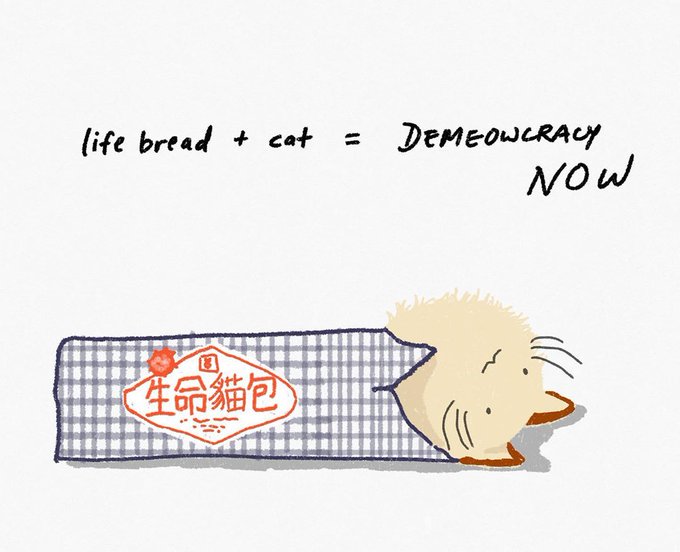 life bread + cat = DEMEOWCRACY
NOW
生命貓包